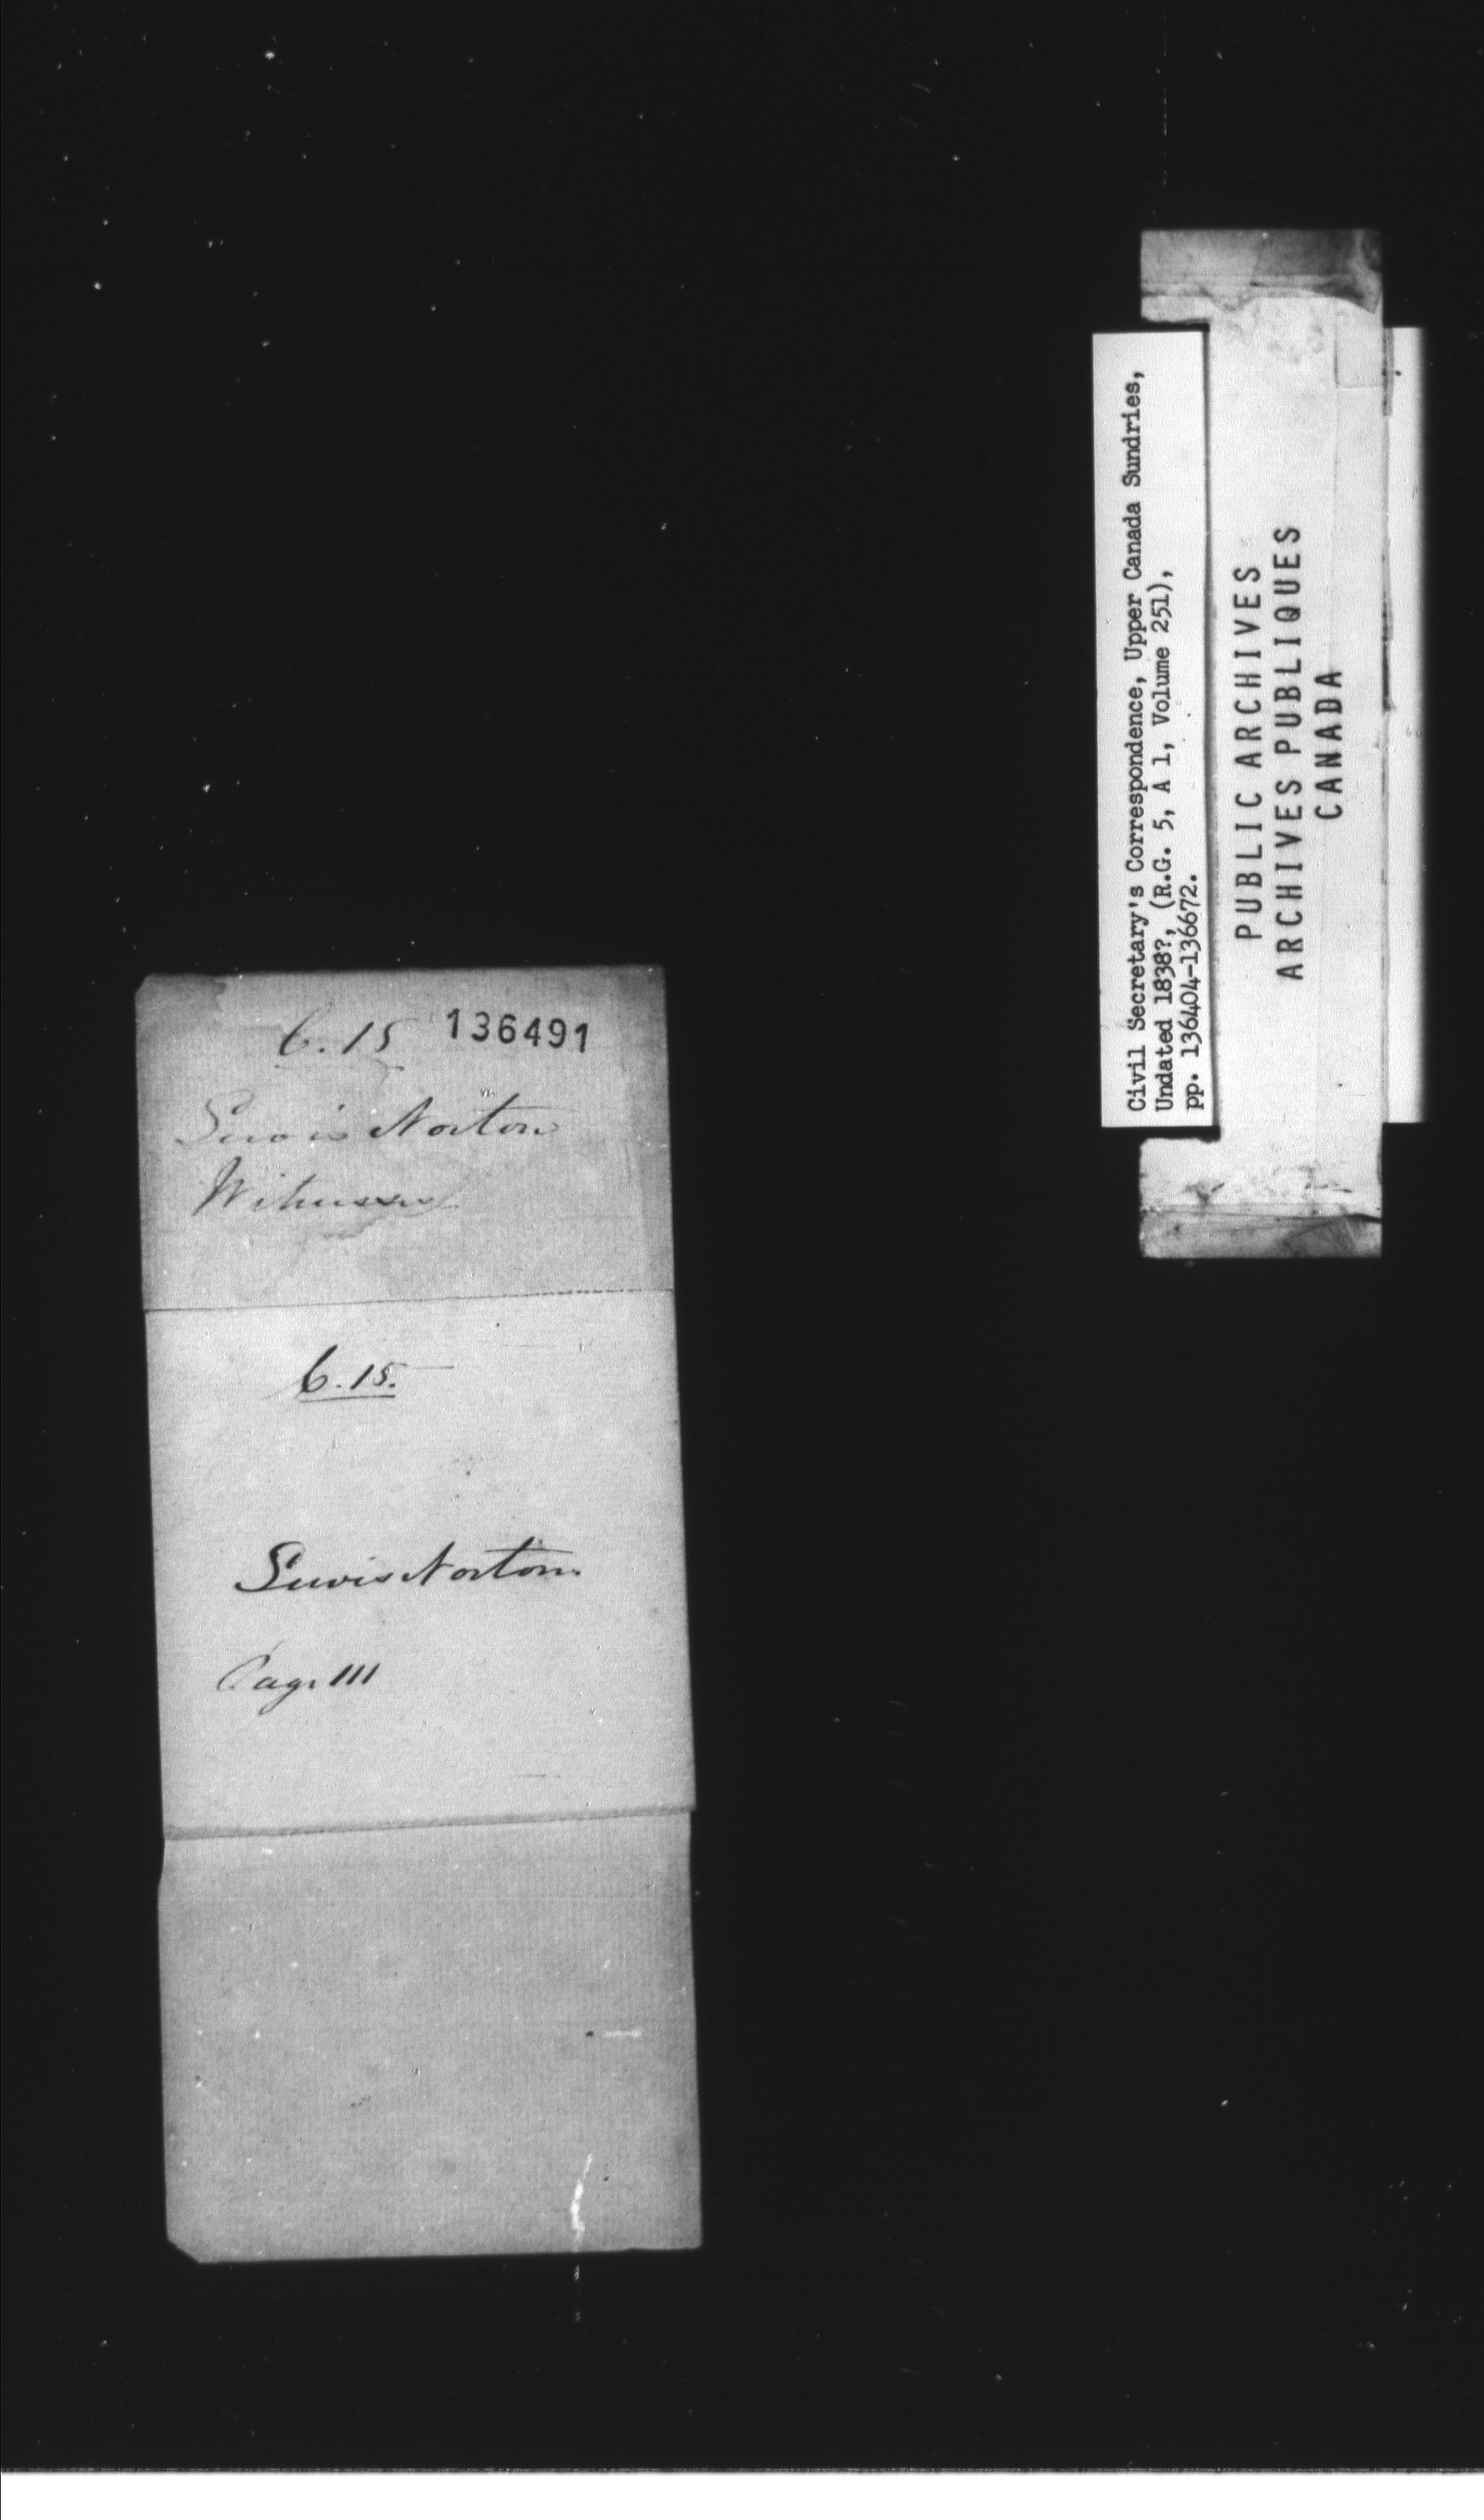 6.15 136491
Lewis Norton
Witnesses
6.15.
Lewis Norton
Page 111
Civil Secretary's Correspondence, Upper Canada Sundries,
Undated 1838?, (R.G. 5, A 1, Volume 251),
pp. 136404-136672.
PUBLIC ARCHIVES
ARCHIVES PUBLIQUES
CANADA